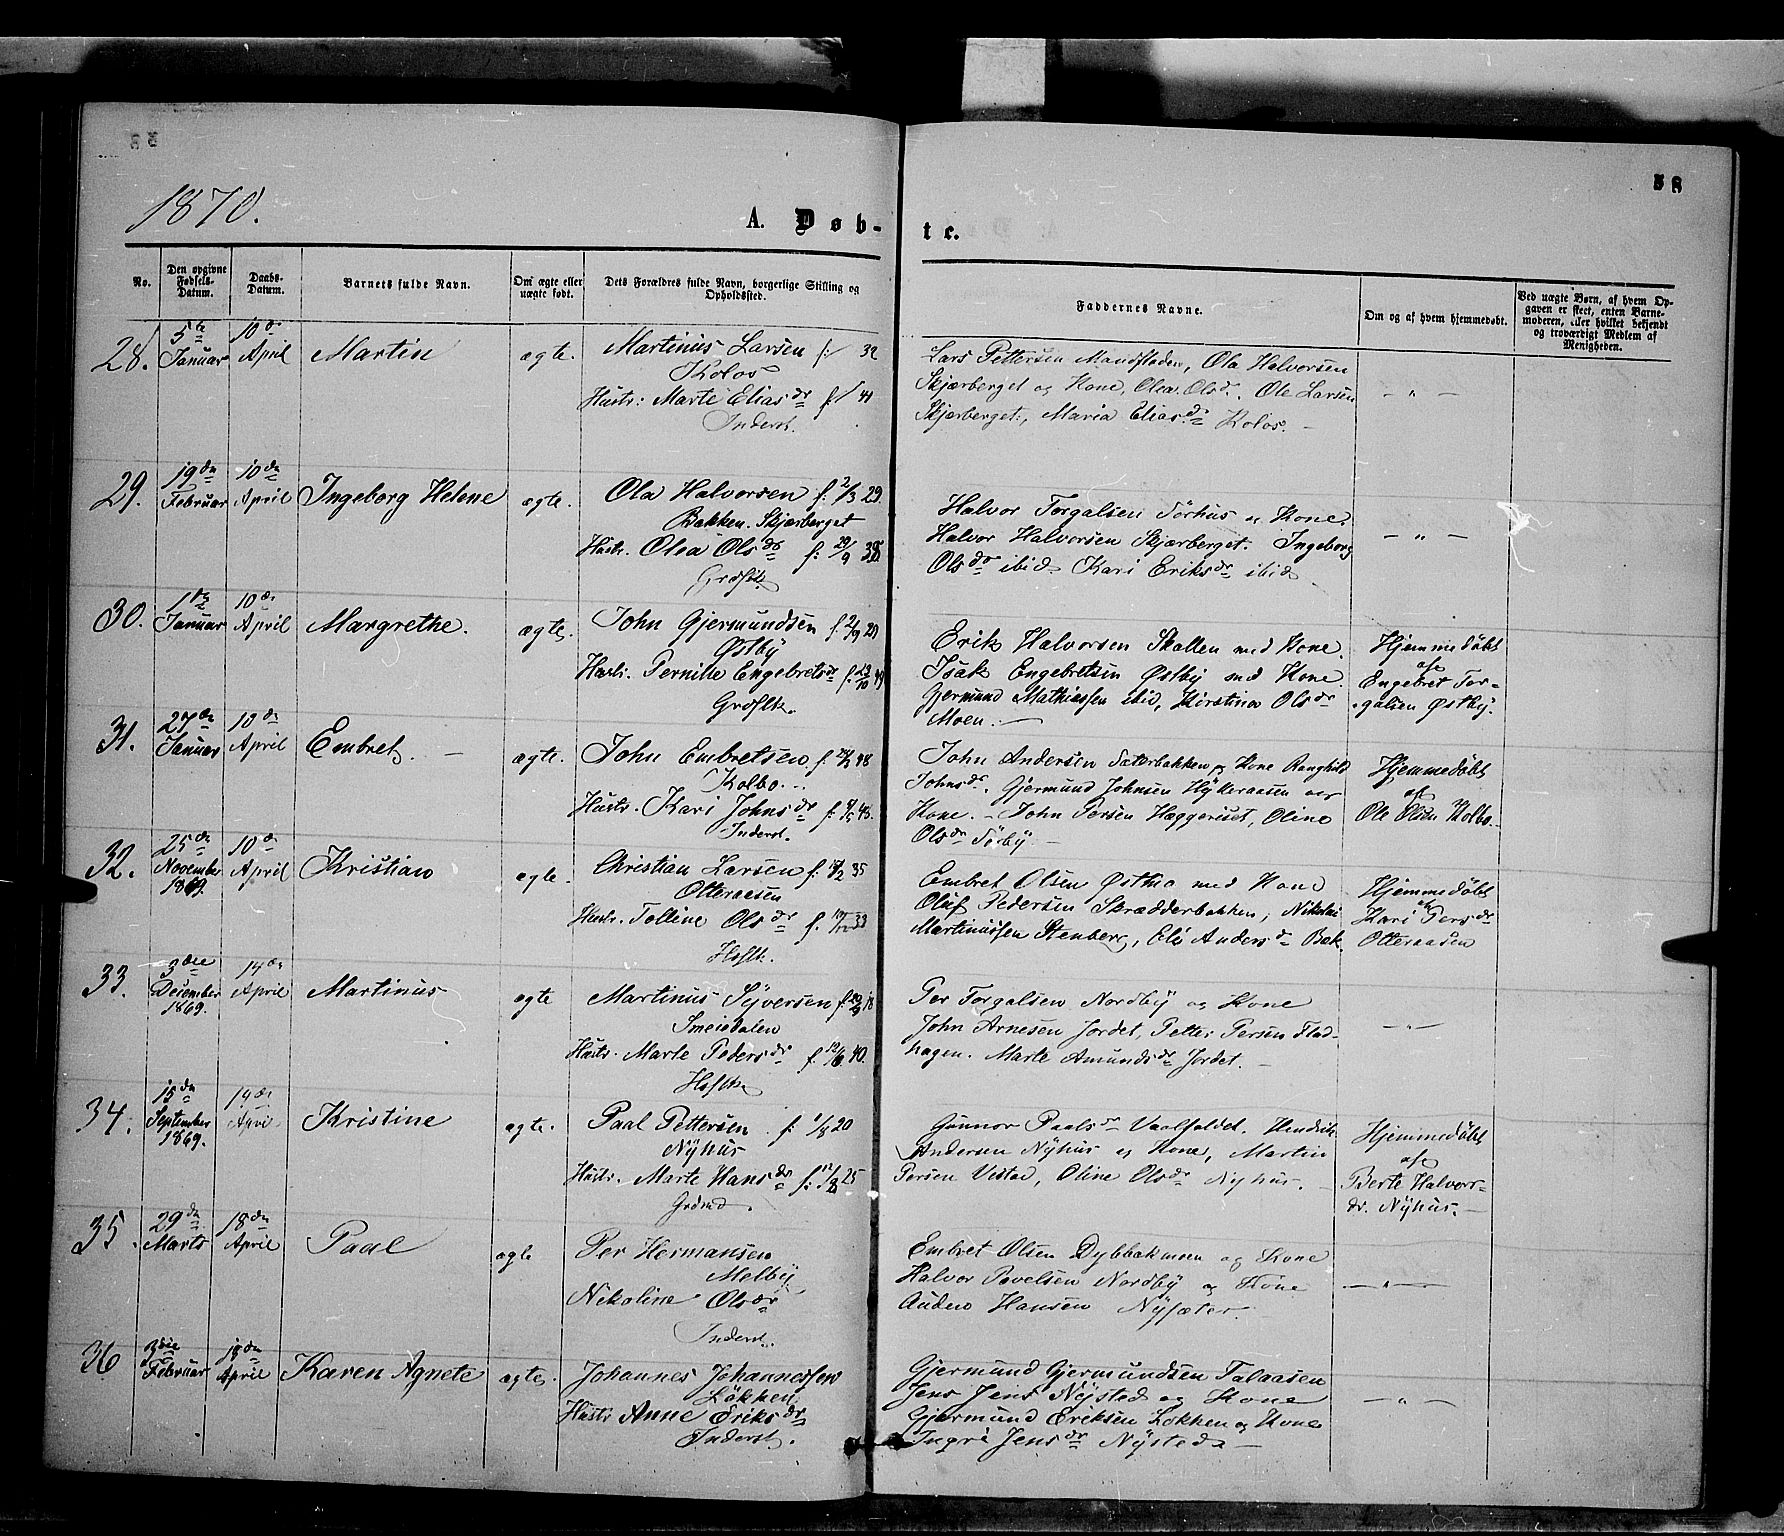 58
1870.
A. Døb-
te.
No.
Den opgivne Fødsels-Datum.
Daabs-Datum.
Barnets fulde Navn.
Om ægte eller uægte født.
Dets Forældres fulde Navn, borgerlige Stilling og Opholdssted.
Faddernes Navne.
Om og af hvem hjemmedøbt.
Ved uægte Børn, af hvem Opgaven er skeet, enten Barnemoderen, eller hvilket bekjendt og troværdigt Medlem af Menigheden.
28. 5te Januar 10de April Martin ægte. Martinus Larsen f: 32
Kolos
Hustr: Marte Eliasdr f: 41
Inderst.
Lars Pettersen Mandfloden, Ola Halvorsen
Skjærberget og Kone, Olea Olsdr. Ole Larsen
Skjærberget, Maria Eliasdr Kolos. —
— " —
29. 19de Februar 10de April Ingeborg Helene ægte. Ola Halvorsen f. 2/3 29.
Bakken. Skjærberget
Hustr. Olea Olsdr f: 29/9 38
Halvor Torgalsen Sørhus og Kone.
Halvor Halvorsen Skjærberget. Ingeborg
Olsdr ibid. Kari Eriksdr ibid.
— " —
30. 1ste Januar 10de April Margrethe. ægte. John Gjermundsen
Østby
Hustr. Pernille Engebretsdr
Erik Halvorsen Skallen med Kone.
Isak Engebretsen Østby med Kone
Gjermund Mathiassen ibid, Kirstina Olsdr
Moen. —
Hjemmedøbt
af
Engebret Tor-
galsen Østby.
31. 27de Januar 10de April Embret. — ægte. John Embretsen 48
Kolbo.
Hustr. Kari Johnsdr 45.
Inderst.
John Andersen Sæterbakken og Kone Ranghild
Johnsdr. Gjermund Johnsen og
Kone. — John Persen Haggeriset, Oline
Olsdr Sørby. —
Hjemmedøbt
af
Ole Olsen Kolbo.
32. 25de November 1869. 10de April Kristian ægte. Christian Larsen 35
Otteraasen
Hustr. Tolline Olsdr 33
Embret Olsen Østmo med Kone
Oluf Pedersen Skrædderbakken, Nikolai
Martinussen Stenberg, Eli Andersdr Bak.
Hjemmedøbt
af
Kari Persdr
Otteraasen
33. 3die December 1869. 14de April Martinus ægte Martinus Syversen
Smeiedalen
Hustr. Marte Pedersdr f. 12/6 40.
Per Torgalsen Nordby og Kone
John Arnesen Jordet, Petter Persen Flad-
hagen. Marte Amundsdr Jordet. —
— " —
34. 15de September 1869. Kristine ægte. Paal Pettersen f: 1/8 20
Nyhus
Hustr. Marte Hansdr 25
Gunnor Paalsdr Vaalfaldet. Hendrik
Andersen Nyhus og Kone, Martin
Persen Vestad, Oline Olsdr Nyhus. —
Hjemmedøbt
af
Berte Halvors-
dr. Nyhus. —
35. 29de Marts 18de April Paal ægte Per Hermansen
Melby
Nekoline Olsdr
Inderst.
Embret Olsen Dybbakmoen og Kone
Halvor Povelsen Nordby og Kone
Anders Hansen Nysæter.
— " —
36 3die Februar 18de April Karen Agnete ægte. Johannes Johannessen
Løkken
Hustr Anne Eriksdr
Inderst.
Gjermund Gjermundsen Talaasen
Jens Jens Nysted og Kone
Gjermund Eriksen Løkken og Kone
Ingri Jensdr Nysted. —
— " —